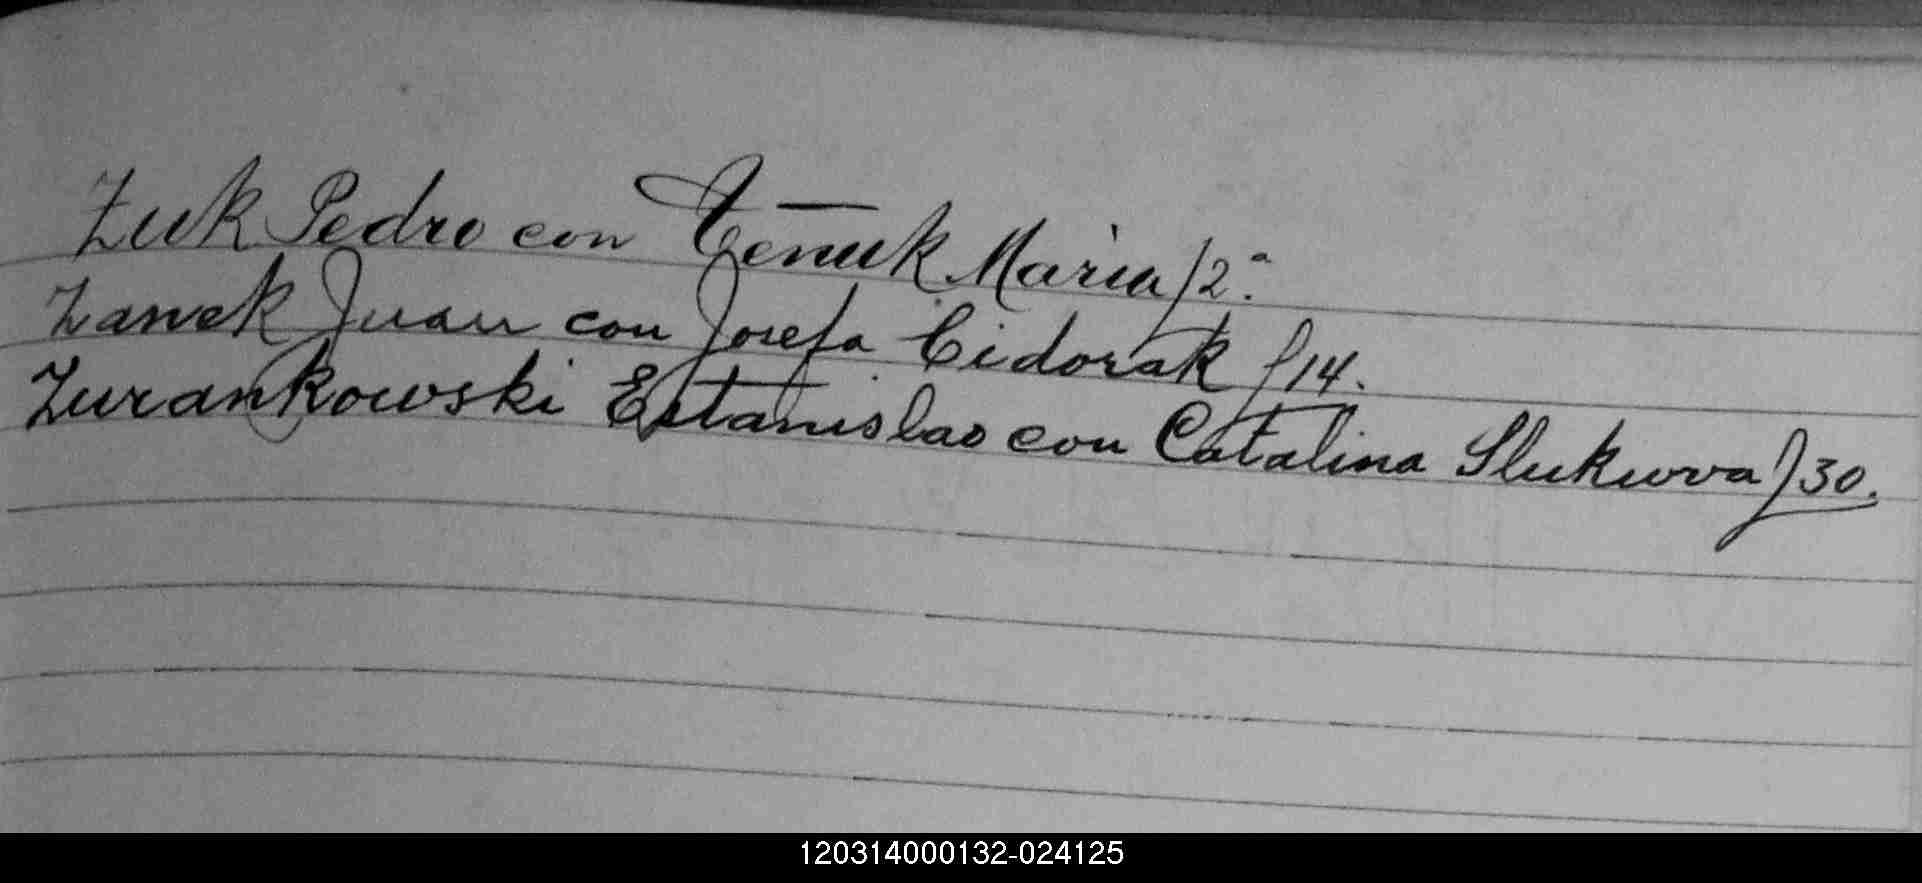 Zuk Pedro con Tenuk Maria /2ª.
Zanek Juan con Josefa Cidorak f 14.
Zurankowski Estanislao con Catalina Slukuova f 30.
120314000132-024125